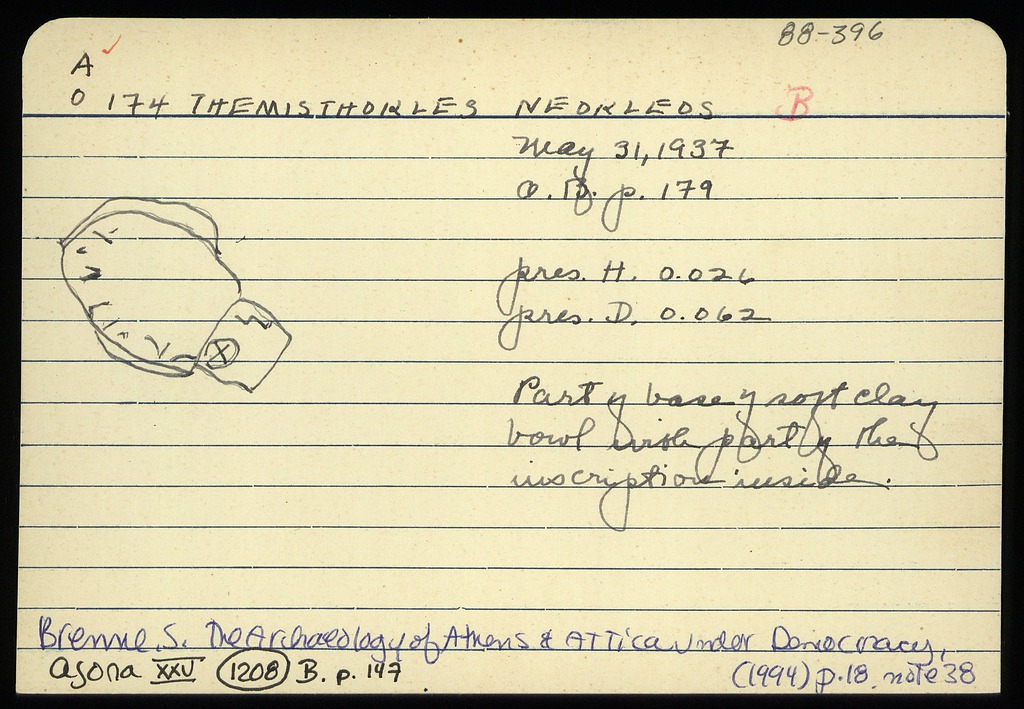 88-396
A ✓
O 174 THEMISTHOKLES NEOKLEOS B
May 31, 1937
O. B. p. 179
pres. H. 0.026
pres. D. 0.062
Part of base of soft clay
bowl with part of the
inscription inside.
Brenne, S. The Archaeology of Athens & ATTica Under Democracy,
Agora XXV 1208 B. p. 147 (1994) p.18, note 38